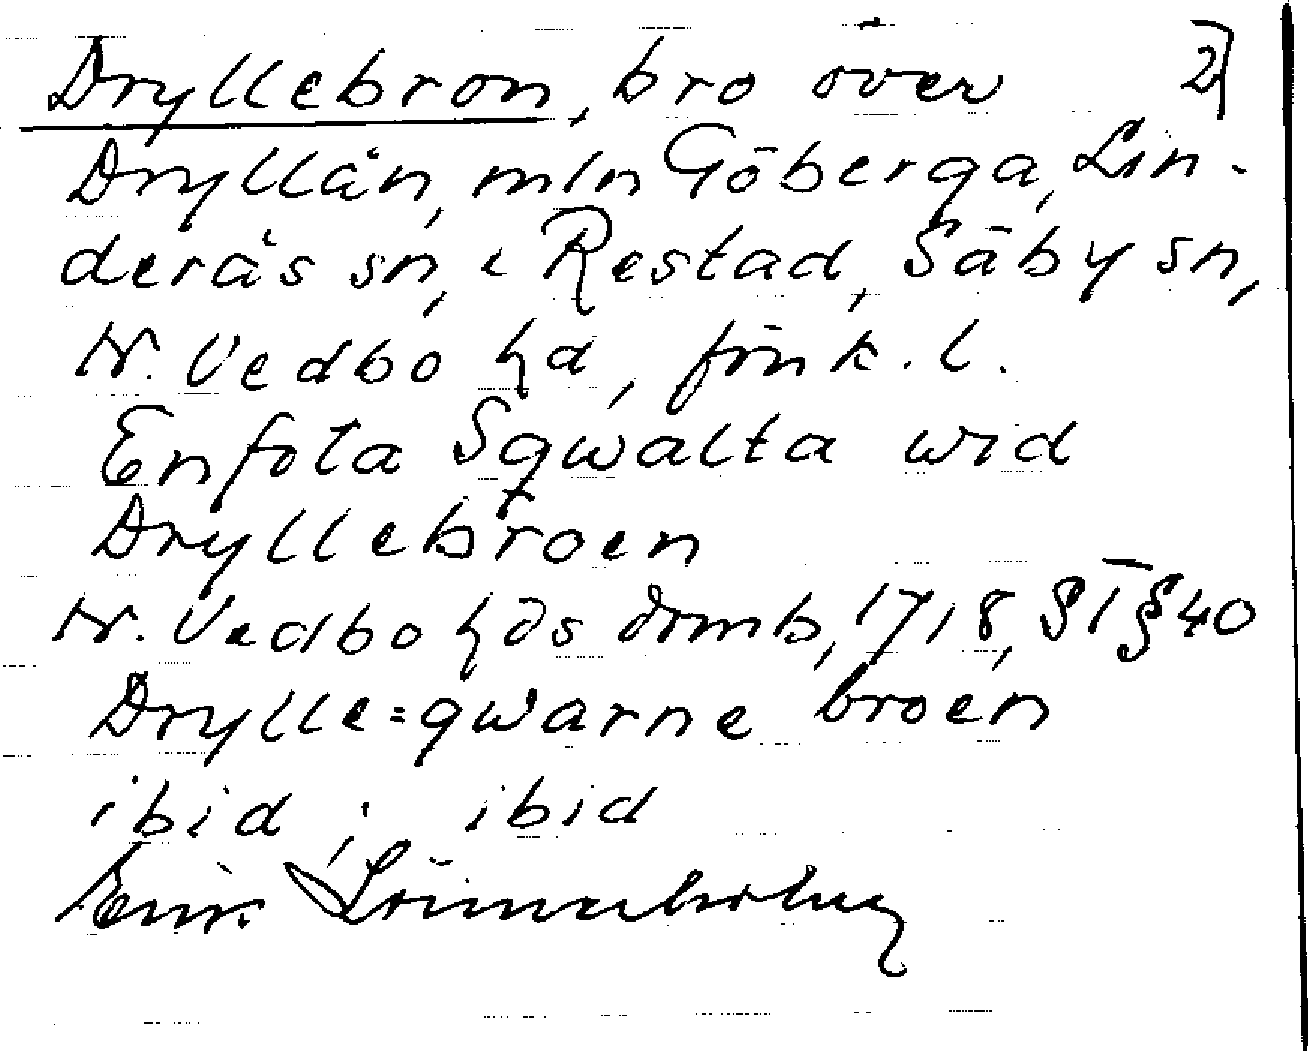 Dryllebron, bro över 2)
Dryllån, mln Göberga, Lin-
derås sn, & Restad, Säby sn,
N. Vedbo hd, Jönk. l.
Enfota Sqwalta wid
Dryllebroen
N. Vedbo hds domb, 1718, § I § 40
Drylle=qwarne broen
ibid; ibid
Einr.